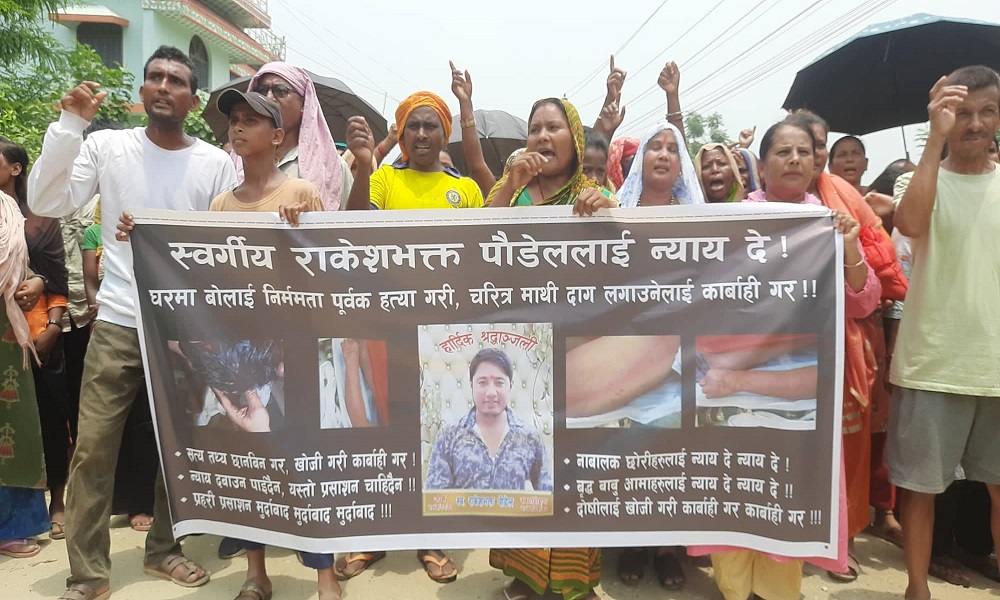 स्वर्गीय राकेशभक्त पौडेललाई न्याय दे !
घरमा बोलाई निर्ममता पूर्वक हत्या गरी, चरित्र माथी दाग लगाउनेलाई कार्बाही गर !!
हार्दिक श्रद्धाञ्जली
स्व. राकेशभक्त पौडेल
• सत्य तथ्य छानबिन गर, खोजी गरी कार्बाही गर !
• न्याय दबाउन पाईदैन, यस्तो प्रसाशन चाहिदैन !!
• प्रहरी प्रसाशन मुर्दाबाद मुर्दाबाद मुर्दाबाद !!!
• नाबालक छोरीहरुलाई न्याय दे न्याय दे !
• बृद्ध बाबु आमाहरुलाई न्याय दे न्याय दे !!
• दोषीलाई खोजी गरी कार्बाही गर कार्बाही गर !!!